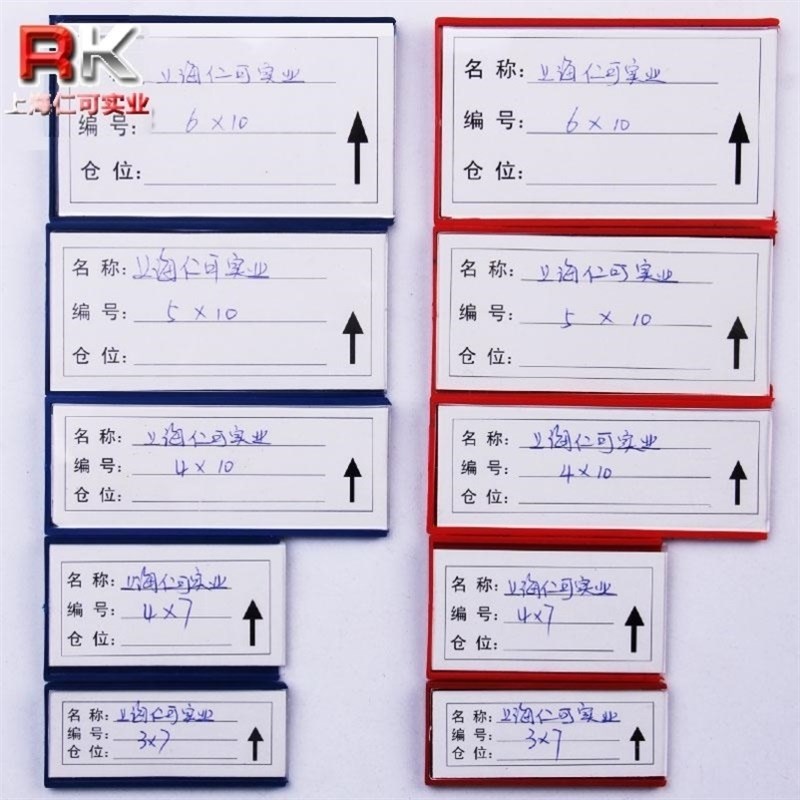 RK
上海仁可实业
名 称: 上海仁可实业
编 号: 6×10
仓 位:
名 称: 上海仁可实业
编 号: 5×10
仓 位:
名 称: 上海仁可实业
编 号: 4×10
仓 位:
名 称: 上海仁可实业
编 号: 4×7
仓 位:
名 称: 上海仁可实业
编 号: 3×7
仓 位:
名 称: 上海仁可实业
编 号: 6×10
仓 位:
名 称: 上海仁可实业
编 号: 5×10
仓 位:
名 称: 上海仁可实业
编 号: 4×10
仓 位:
名 称: 上海仁可实业
编 号: 4×7
仓 位:
名 称: 上海仁可实业
编 号: 3×7
仓 位: